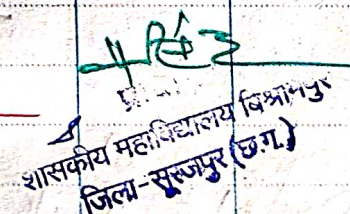 शासकीय महाविद्यालय बिश्रामपुर
जिला-सूरजपुर (छ.ग.)